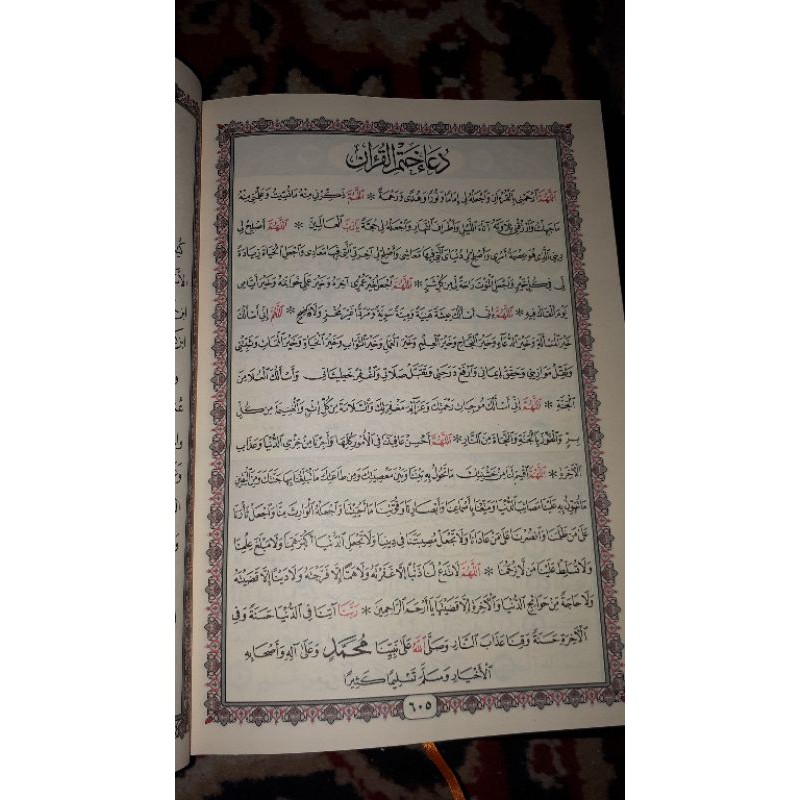 دُعَاءُ خَتْمِ الْقُرْآنِ
اَللّٰهُمَّ ارْحَمْنِي بِالْقُرْءَانِ وَاجْعَلْهُ لِي إِمَامًا وَنُورًا وَهُدًى وَرَحْمَةً * اَللّٰهُمَّ ذَكِّرْنِي مِنْهُ مَا نُسِّيتُ وَعَلِّمْنِي مِنْهُ
مَا جَهِلْتُ وَارْزُقْنِي تِلَاوَتَهُ آنَاءَ اللَّيْلِ وَأَطْرَافَ النَّهَارِ وَاجْعَلْهُ لِي حُجَّةً يَا رَبَّ الْعَالَمِينَ * اَللّٰهُمَّ أَصْلِحْ لِي
دِينِي الَّذِي هُوَ عِصْمَةُ أَمْرِي وَأَصْلِحْ لِي دُنْيَايَ الَّتِي فِيهَا مَعَاشِي وَأَصْلِحْ لِي آخِرَتِي الَّتِي فِيهَا مَعَادِي وَاجْعَلِ الْحَيَاةَ زِيَادَةً
لِي فِي كُلِّ خَيْرٍ وَاجْعَلِ الْمَوْتَ رَاحَةً لِي مِنْ كُلِّ شَرٍّ * اَللّٰهُمَّ اجْعَلْ خَيْرَ عُمْرِي آخِرَهُ وَخَيْرَ عَمَلِي خَوَاتِمَهُ وَخَيْرَ أَيَّامِي
يَوْمَ أَلْقَاكَ فِيهِ * اَللّٰهُمَّ إِنِّي أَسْأَلُكَ عِيشَةً هَنِيَّةً وَمِيتَةً سَوِيَّةً وَمَرَدًّا غَيْرَ مُخْزٍ وَلَا فَاضِحٍ * اَللّٰهُمَّ إِنِّي أَسْأَلُكَ
خَيْرَ الْمَسْأَلَةِ وَخَيْرَ الدُّعَاءِ وَخَيْرَ النَّجَاحِ وَخَيْرَ الْعِلْمِ وَخَيْرَ الْعَمَلِ وَخَيْرَ الثَّوَابِ وَخَيْرَ الْحَيَاةِ وَخَيْرَ الْمَمَاتِ وَثَبِّتْنِي
وَثَقِّلْ مَوَازِينِي وَحَقِّقْ إِيمَانِي وَارْفَعْ دَرَجَتِي وَتَقَبَّلْ صَلَاتِي وَاغْفِرْ خَطِيئَاتِي وَأَسْأَلُكَ الْعُلَا مِنَ
الْجَنَّةِ * اَللّٰهُمَّ إِنِّي أَسْأَلُكَ مُوجِبَاتِ رَحْمَتِكَ وَعَزَائِمَ مَغْفِرَتِكَ وَالسَّلَامَةَ مِنْ كُلِّ إِثْمٍ وَالْغَنِيمَةَ مِنْ كُلِّ
بِرٍّ وَالْفَوْزَ بِالْجَنَّةِ وَالنَّجَاةَ مِنَ النَّارِ * اَللّٰهُمَّ أَحْسِنْ عَاقِبَتَنَا فِي الْأُمُورِ كُلِّهَا وَأَجِرْنَا مِنْ خِزْيِ الدُّنْيَا وَعَذَابِ
الْآخِرَةِ * اَللّٰهُمَّ اقْسِمْ لَنَا مِنْ خَشْيَتِكَ مَا تَحُولُ بِهِ بَيْنَنَا وَبَيْنَ مَعْصِيَتِكَ وَمِنْ طَاعَتِكَ مَا تُبَلِّغُنَا بِهَا جَنَّتَكَ وَمِنَ الْيَقِينِ
مَا تُهَوِّنُ بِهِ عَلَيْنَا مَصَائِبَ الدُّنْيَا وَمَتِّعْنَا بِأَسْمَاعِنَا وَأَبْصَارِنَا وَقُوَّتِنَا مَا أَحْيَيْتَنَا وَاجْعَلْهُ الْوَارِثَ مِنَّا وَاجْعَلْ ثَأْرَنَا
عَلَى مَنْ ظَلَمَنَا وَانْصُرْنَا عَلَى مَنْ عَادَانَا وَلَا تَجْعَلْ مُصِيبَتَنَا فِي دِينِنَا وَلَا تَجْعَلِ الدُّنْيَا أَكْبَرَ هَمِّنَا وَلَا مَبْلَغَ عِلْمِنَا
وَلَا تُسَلِّطْ عَلَيْنَا مَنْ لَا يَرْحَمُنَا * اَللّٰهُمَّ لَا تَدَعْ لَنَا ذَنْبًا إِلَّا غَفَرْتَهُ وَلَا هَمًّا إِلَّا فَرَّجْتَهُ وَلَا دَيْنًا إِلَّا قَضَيْتَهُ
وَلَا حَاجَةً مِنْ حَوَائِجِ الدُّنْيَا وَالْآخِرَةِ إِلَّا قَضَيْتَهَا يَا أَرْحَمَ الرَّاحِمِينَ * رَبَّنَا آتِنَا فِي الدُّنْيَا حَسَنَةً وَفِي
الْآخِرَةِ حَسَنَةً وَقِنَا عَذَابَ النَّارِ وَصَلَّى اللّٰهُ عَلَى نَبِيِّنَا مُحَمَّدٍ وَعَلَى آلِهِ وَأَصْحَابِهِ
الْأَخْيَارِ وَسَلَّمَ تَسْلِيمًا كَثِيرًا
٦٠٥